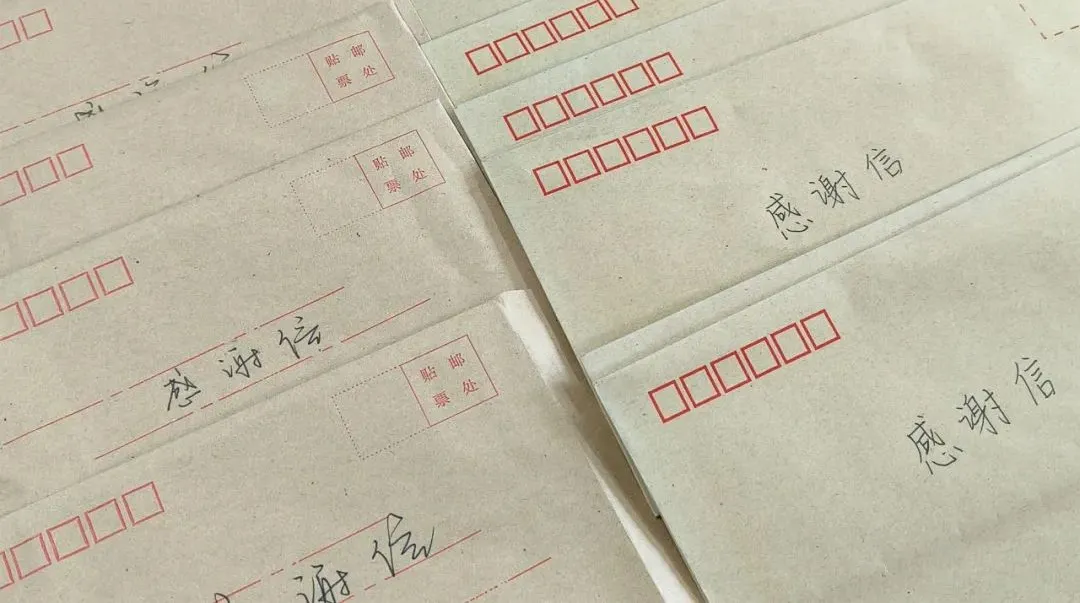 贴邮
票处
贴邮
票处
感谢信
贴邮
票处
谢信
感谢信
感谢信